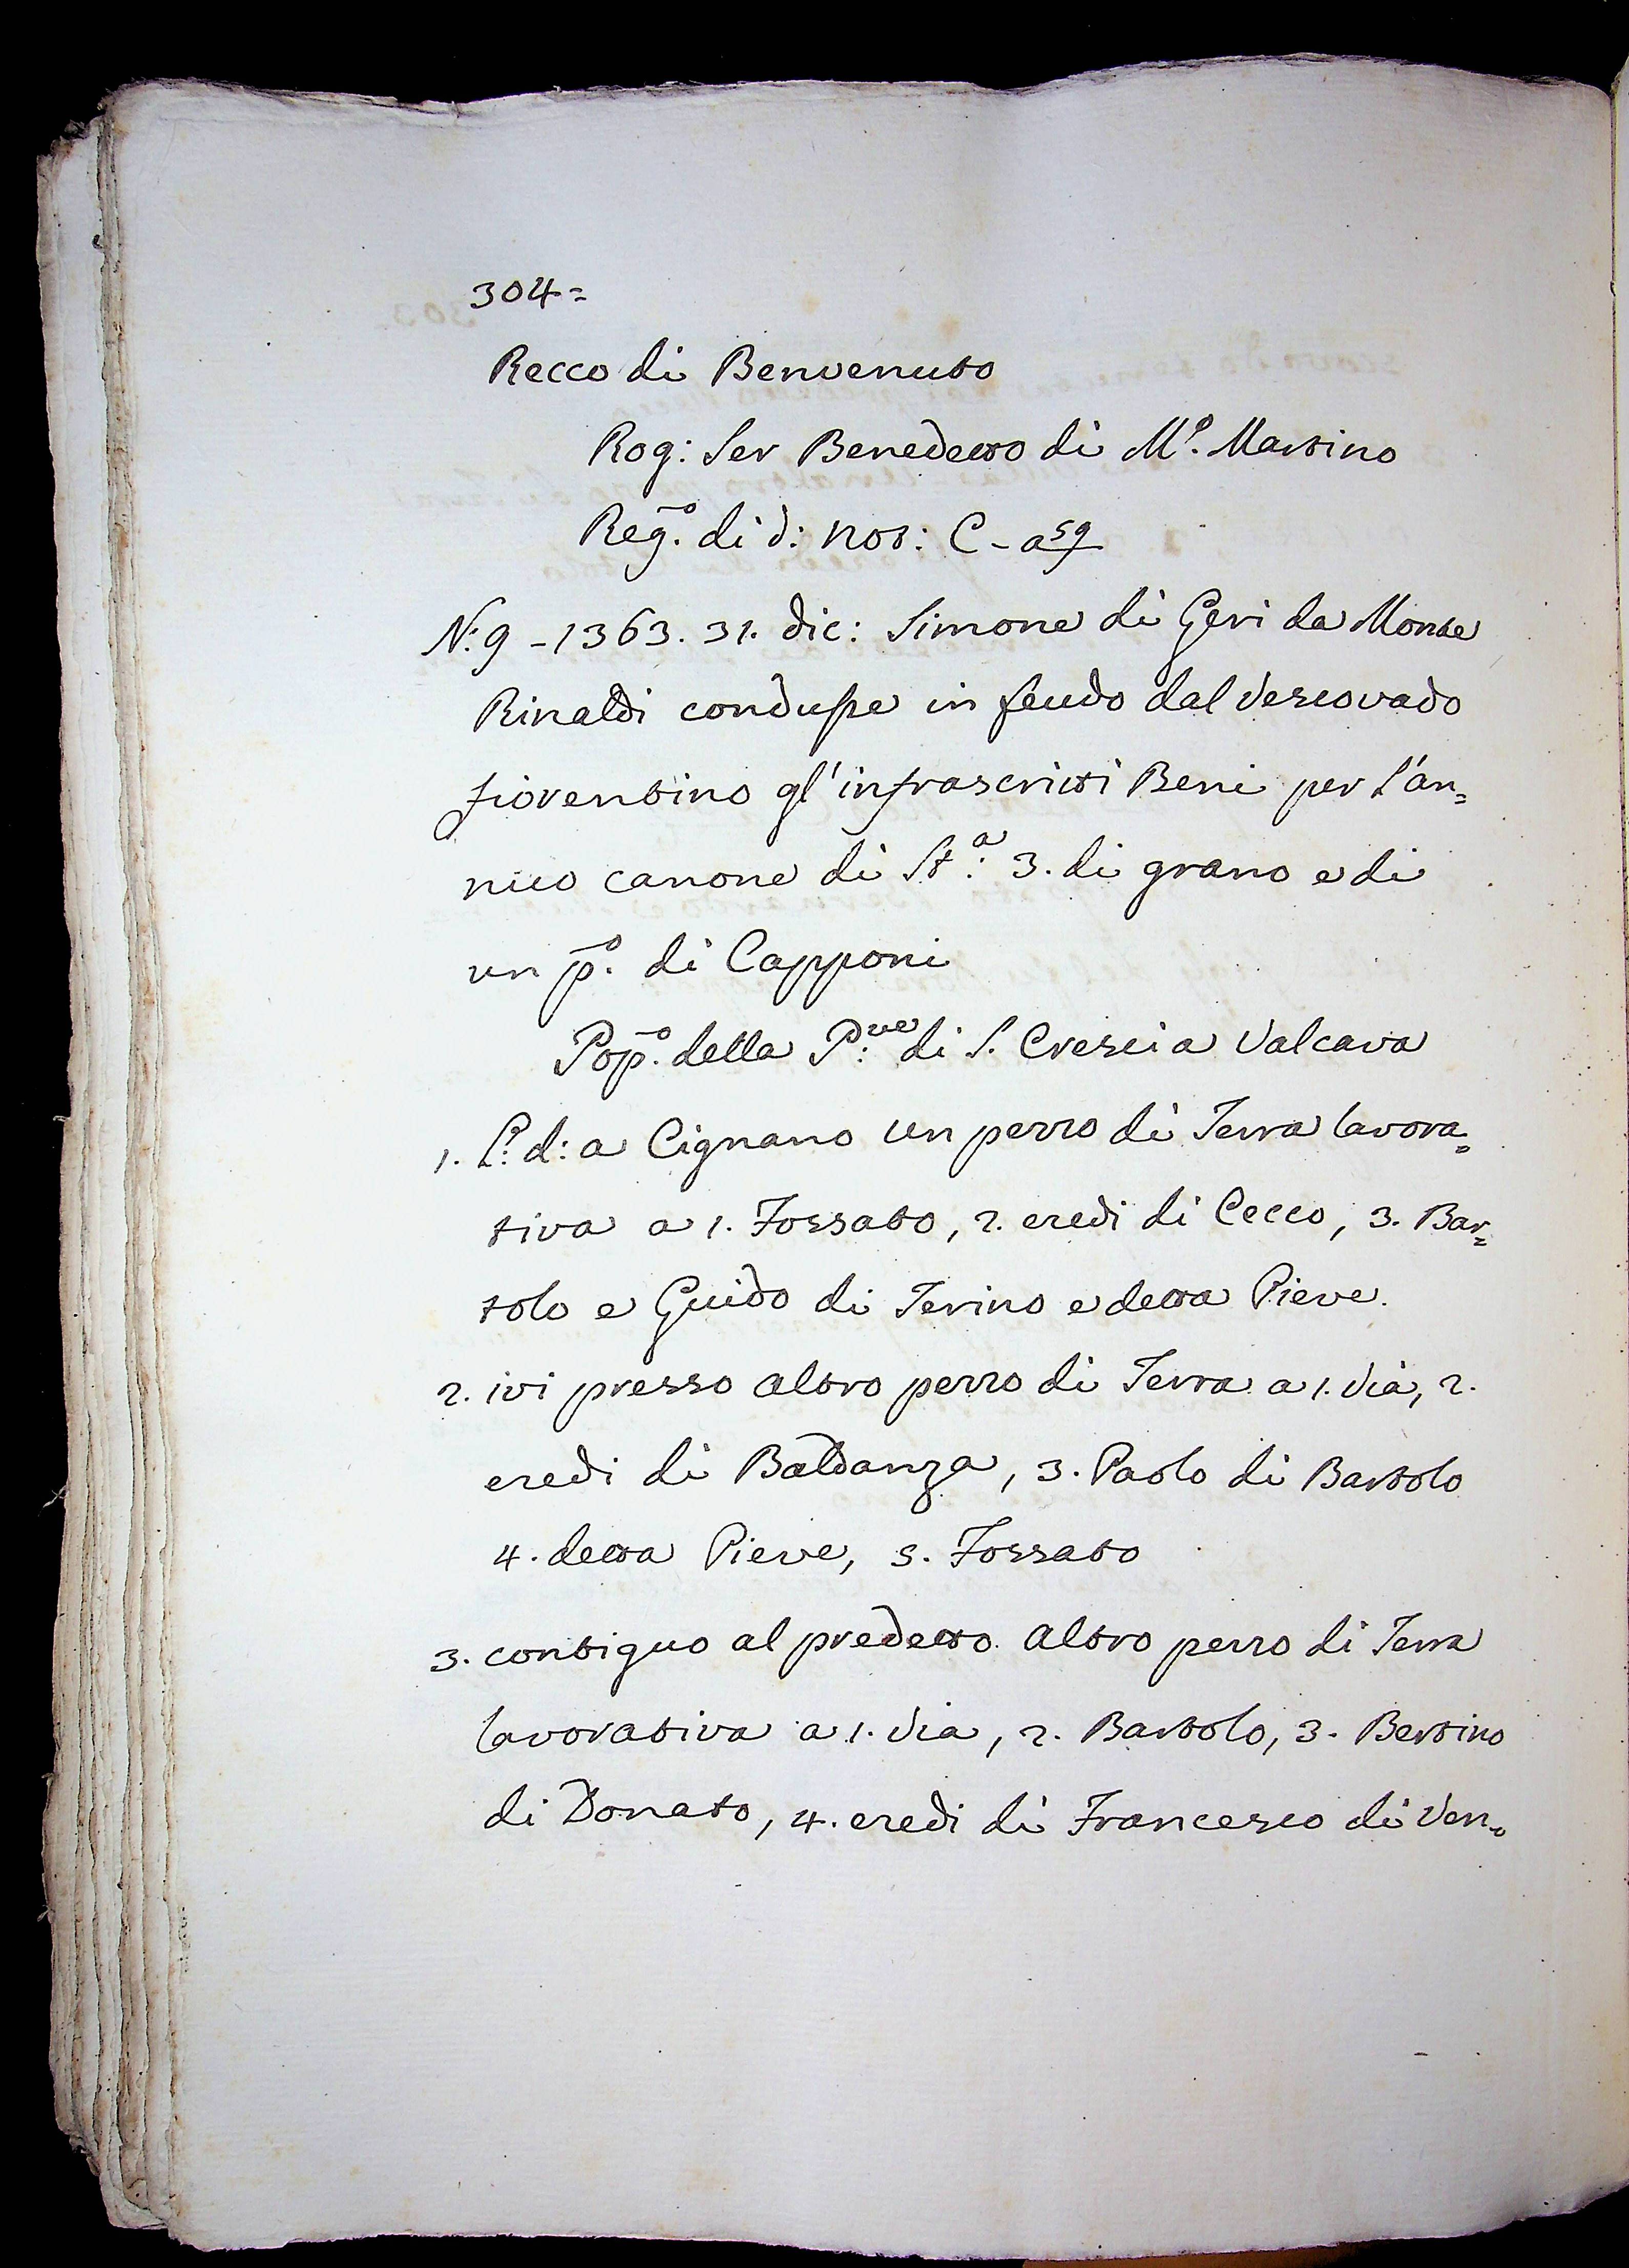 304=
Recco di Benvenuto
Rog: Ser Benedetto di M.º Martino
Reg.º di d: not: C - a 59
N: 9 - 1363. 31. dic: Simone di Geri da Monte
Rinaldi condusse in feudo dal Vescovado
fiorentino gl'infrascritti Beni per l'an=
nuo canone di St.ª 3. di grano e di
un p.º di Capponi
Pop.º della P.ve di S. Cresci a Valcava
1. L.º d: a Cignano un pezzo di Terra lavora=
tiva a 1. Fossato, 2. eredi di Cecco, 3. Bar=
tolo e Guido di Terino e detta Pieve.
2. ivi presso altro pezzo di Terra a 1. Via, 2.
eredi di Baldanza, 3. Paolo di Bartolo
4. detta Pieve, 5. Fossato
3. contiguo al predetto altro pezzo di Terra
lavorativa a 1. Via, 2. Bartolo, 3. Bertino
di Donato, 4. eredi di Francesco di Ven=